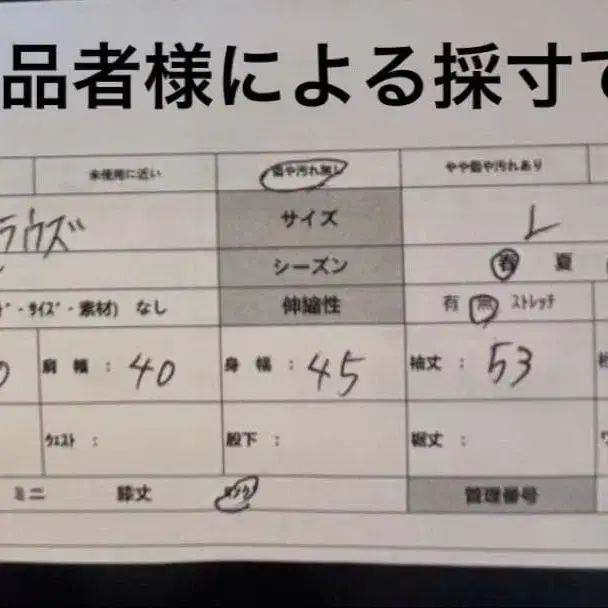 品者様による採寸で
未使用に近い 傷や汚れ無し やや傷や汚れあり
ラウズ サイズ L
シーズン 春 夏
・サイズ・素材) なし 伸縮性 有 無 ストレッチ
肩幅: 40 身幅: 45 袖丈: 53
ウエスト: 股下: 裾丈:
ミニ 膝丈 ロング 管理番号